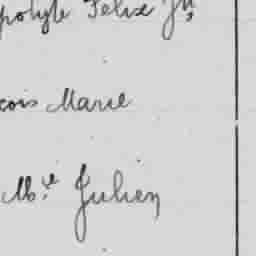 polyte Félix Jh,
çois Marie
M.ie Julien